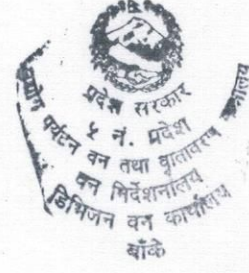 प्रदेश सरकार
५ नं. प्रदेश
उद्योग पर्यटन वन तथा वातावरण
वन निर्देशनालय
डिभिजन वन कार्यालय
बाँके